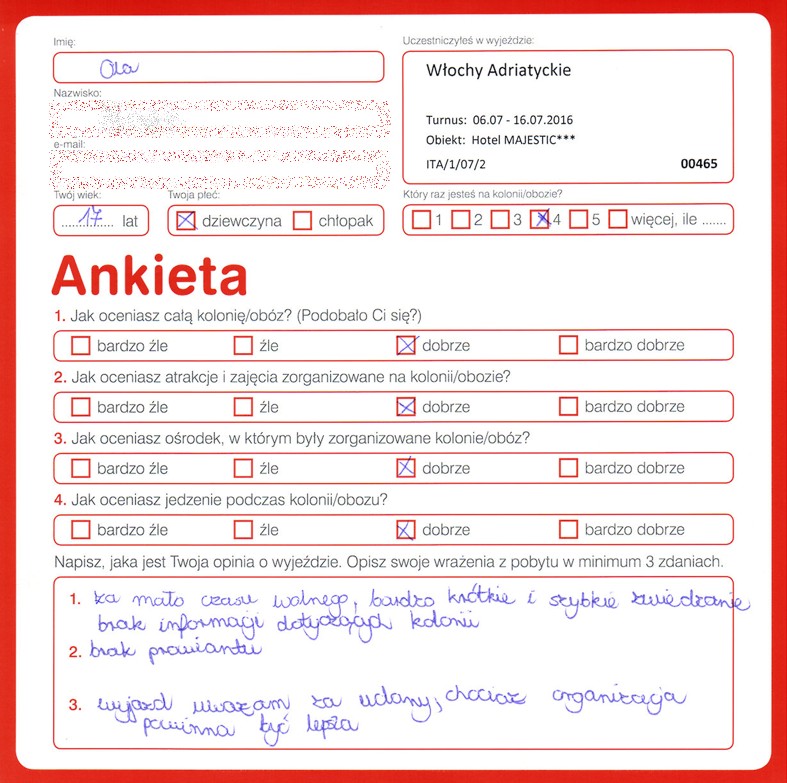 Imię:
Ola
Nazwisko:
e-mail:
Uczestniczyłeś w wyjeździe:
Włochy Adriatyckie
Turnus: 06.07 - 16.07.2016
Obiekt: Hotel MAJESTIC***
ITA/1/07/2 00465
Twój wiek:
17 lat
Twoja płeć:
dziewczyna chłopak
Który raz jesteś na kolonii/obozie?
1 2 3 4 5 więcej, ile .......
Ankieta
1. Jak oceniasz całą kolonię/obóz? (Podobało Ci się?)
bardzo źle źle dobrze bardzo dobrze
2. Jak oceniasz atrakcje i zajęcia zorganizowane na kolonii/obozie?
bardzo źle źle dobrze bardzo dobrze
3. Jak oceniasz ośrodek, w którym były zorganizowane kolonie/obóz?
bardzo źle źle dobrze bardzo dobrze
4. Jak oceniasz jedzenie podczas kolonii/obozu?
bardzo źle źle dobrze bardzo dobrze
Napisz, jaka jest Twoja opinia o wyjeździe. Opisz swoje wrażenia z pobytu w minimum 3 zdaniach.
1. za mało czasu wolnego, bardzo krótkie i szybkie zwiedzanie
brak informacji dotyczących kolonii
2. brak prowiantu
3. wyjazd uważam za udany, chociaż organizacja
powinna być lepsza